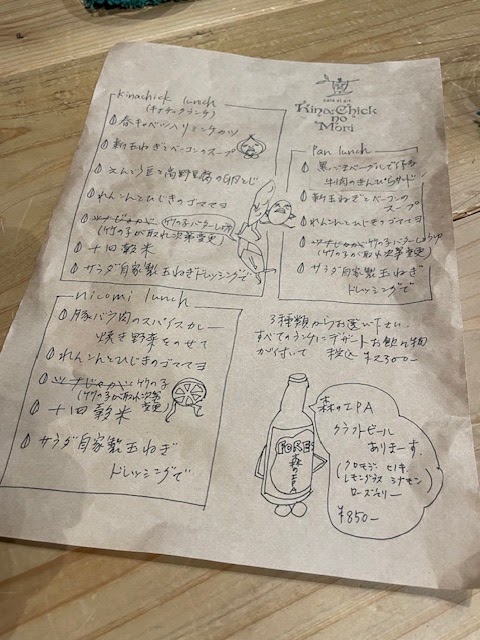 kinachick lunch
(キナチックランチ)
春キャベツ入りメンチカツ
新玉ねぎとベーコンのスープ
えんどう豆と高野豆腐の卵とじ
れんこんとひじきのゴママヨ
竹の子バターしょうゆ
(竹の子が取れ次第変更)
十四穀米
サラダ自家製玉ねぎドレッシングで
cafe et art
Kina Chick
no
Mori
Pan lunch
黒ごまベーグルで
牛肉のきんぴらサンド
新玉ねぎとベーコンの
スープ
れんこんとひじきのゴママヨ
竹の子バターしょうゆ
(竹の子が取れ次第変更)
サラダ自家製玉ねぎ
ドレッシングで
nicomi lunch
豚バラ肉のスパイスカレー
焼き野菜をのせて
れんこんとひじきのゴママヨ
竹の子
(竹の子が取れ次第
変更)
十四穀米
サラダ自家製玉ねぎ
ドレッシングで
3種類からお選び下さい。
すべてのランチにデザートお飲み物
が付いて 税込 ¥2300ー
森のIPA
クラフトビール
ありまーす。
(クロモジ ヒノキ
レモングラス シナモン
ローズマリー)
¥850ー
森のIPA